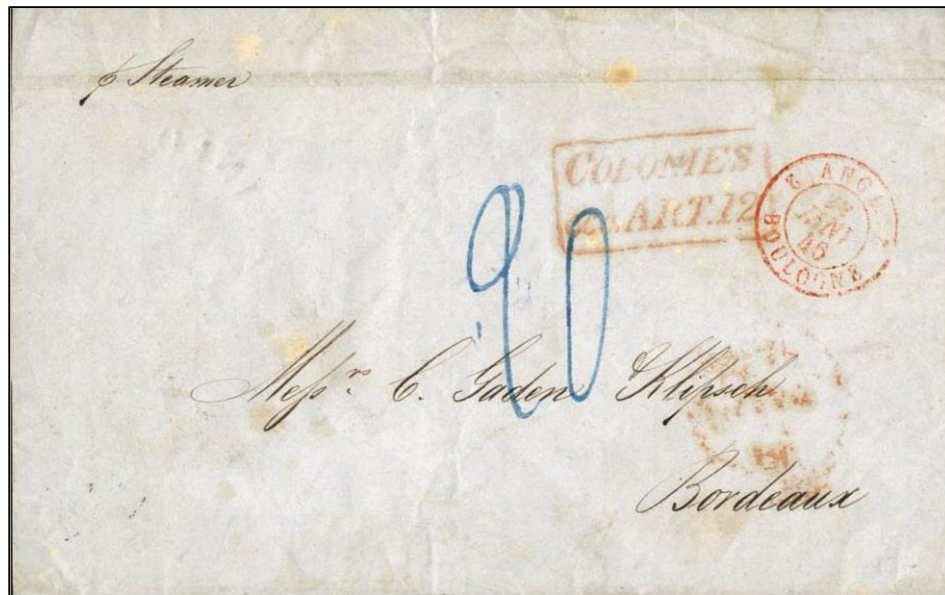 p Steamer
COLONIES
&c. ART. 12
ANGL.
BOULOGNE
46
20
Messrs. C. Gaden & Klipsch
Bordeaux